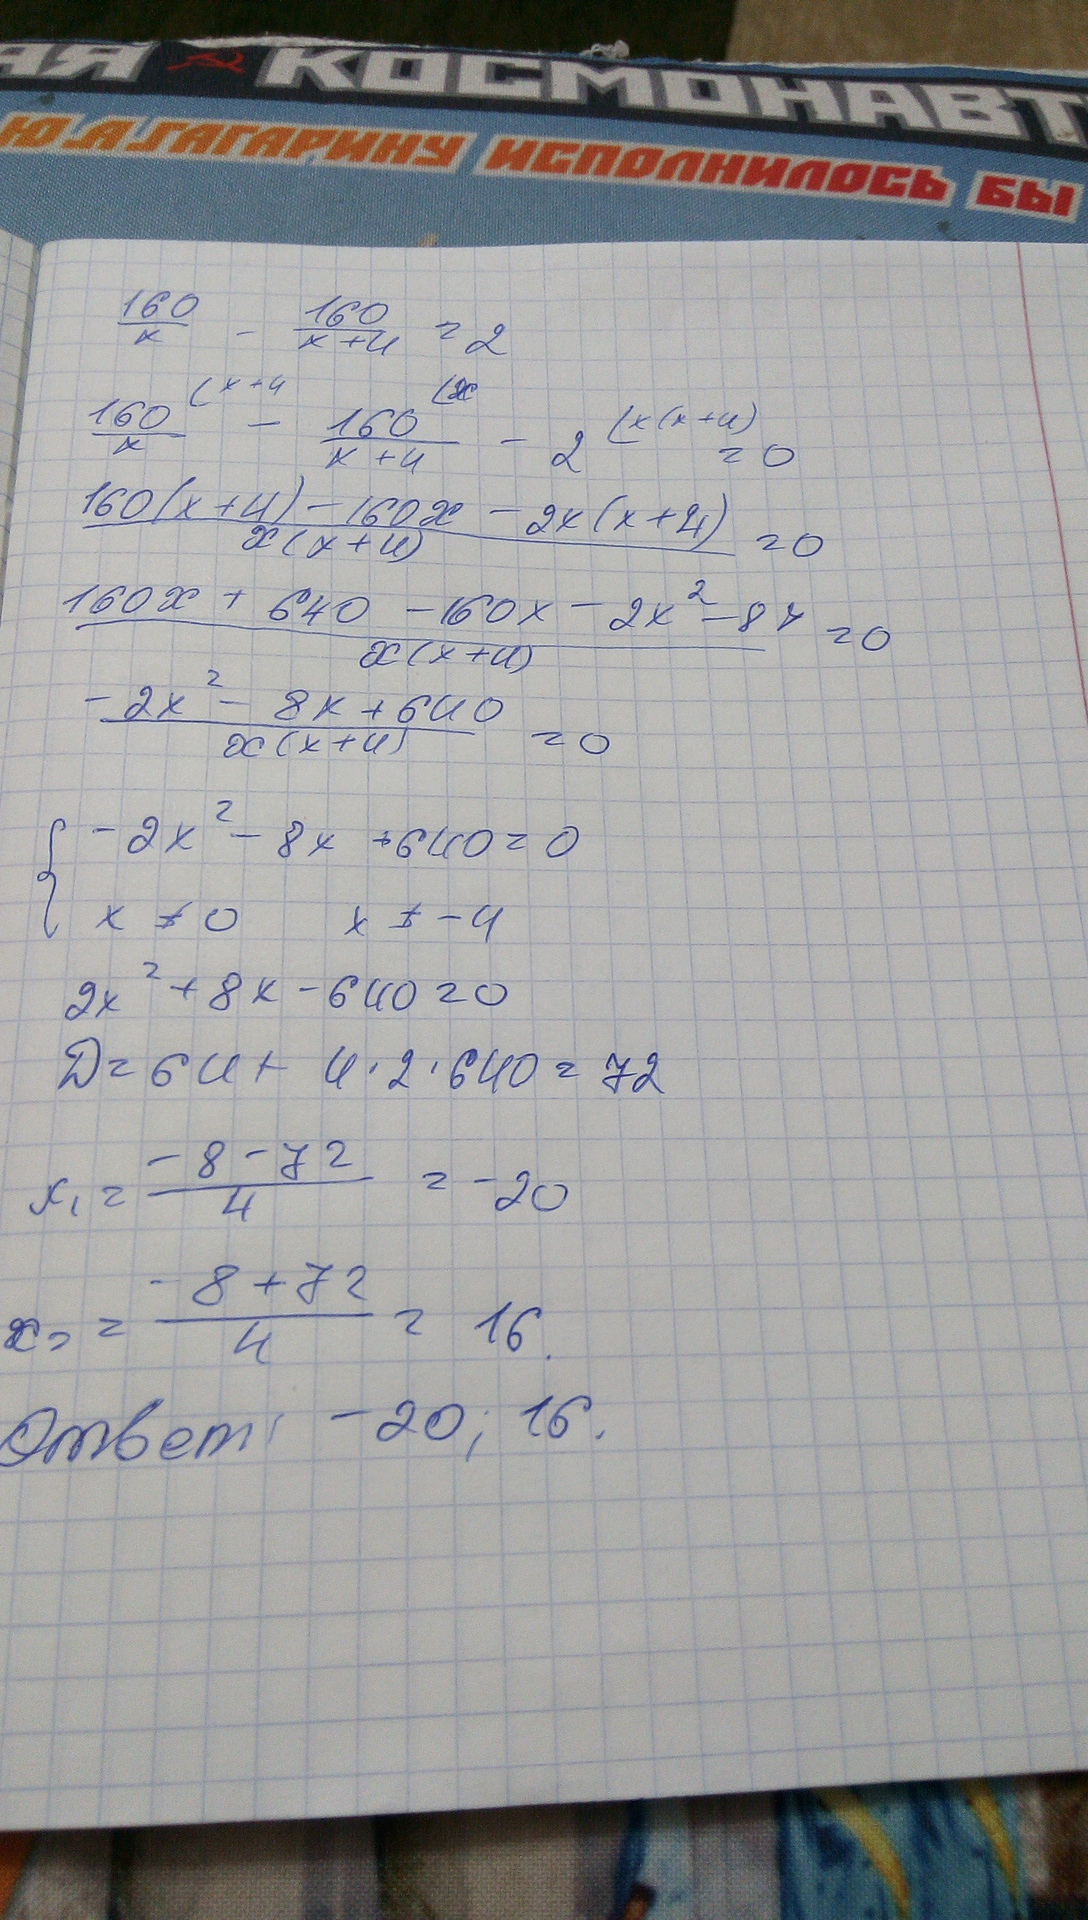 АЯ КОСМОНАВТ
Ю.А.ГАГАРИНУ ИСПОЛНИЛОСЬ БЫ
160/x - 160/(x+4) = 2
160/x (x+4 - 160/(x+4) (x - 2 (x(x+4) = 0
(160(x+4) - 160x - 2x(x+4))/(x(x+4)) = 0
(160x + 640 - 160x - 2x² - 8x)/(x(x+4)) = 0
(-2x² - 8x + 640)/(x(x+4)) = 0
{ -2x² - 8x + 640 = 0
x ≠ 0 x ≠ -4
2x² + 8x - 640 = 0
D = 64 + 4·2·640 = 72
x₁ = (-8-72)/4 = -20
x₂ = (-8+72)/4 = 16.
Ответ: -20; 16.